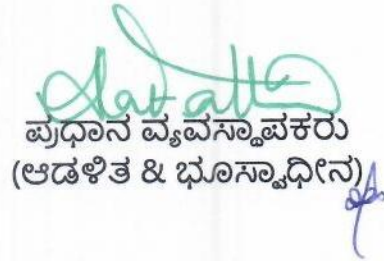 ಪ್ರಧಾನ ವ್ಯವಸ್ಥಾಪಕರು
(ಆಡಳಿತ & ಭೂಸ್ವಾಧೀನ)